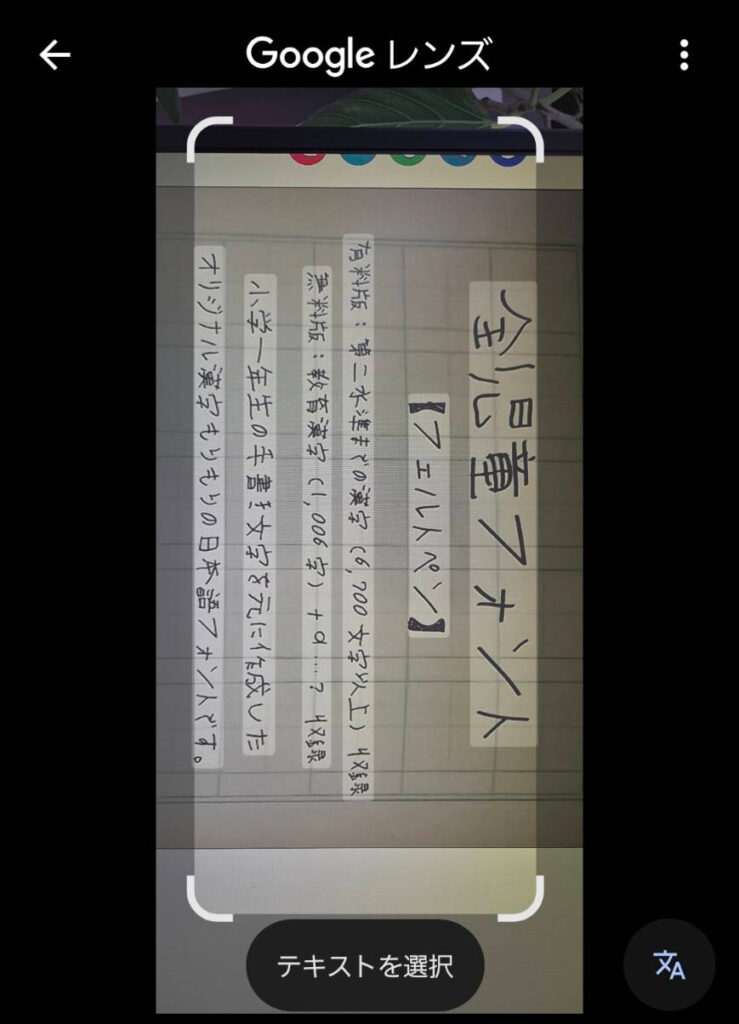 Google レンズ
剣児童フォント
【フェルトペン】
有料版：第二水準までの漢字（6,700文字以上）収録
無料版：教育漢字（1,006字）+α…？収録
小学一年生の手書き文字を元に作成した
オリジナル漢字もりもりの日本語フォントです。
テキストを選択